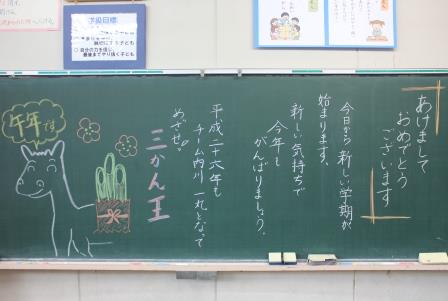 学級目標
あけまして
おめでとう
ございます
今日から新しい学期が
始まります。
新しい気持ちで
今年も
がんばりましょう。
平成二十六年も
チーム内川一丸となって
めざせ!
三かん王
午年です